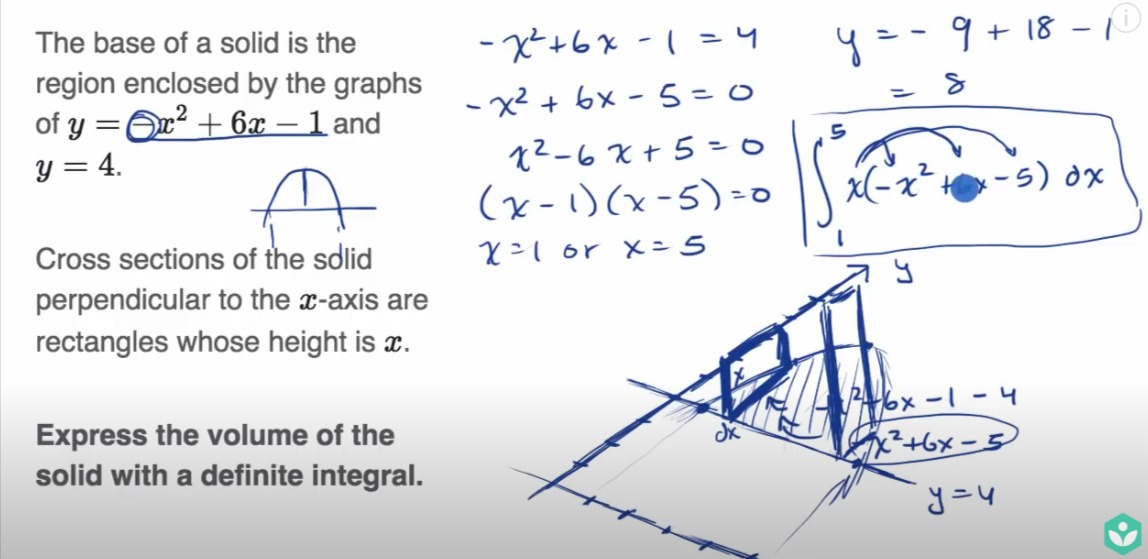 The base of a solid is the
region enclosed by the graphs
of y = −x² + 6x − 1 and
y = 4.
Cross sections of the solid
perpendicular to the x-axis are
rectangles whose height is x.
Express the volume of the
solid with a definite integral.
-x² + 6x - 1 = 4
-x² + 6x - 5 = 0
x² - 6x + 5 = 0
(x - 1)(x - 5) = 0
x = 1 or x = 5
y = - 9 + 18 - 1
= 8
∫₁⁵ x(-x² + 6x - 5) dx
y
x
dx
-x² + 6x - 1 - 4
-x² + 6x - 5
y = 4